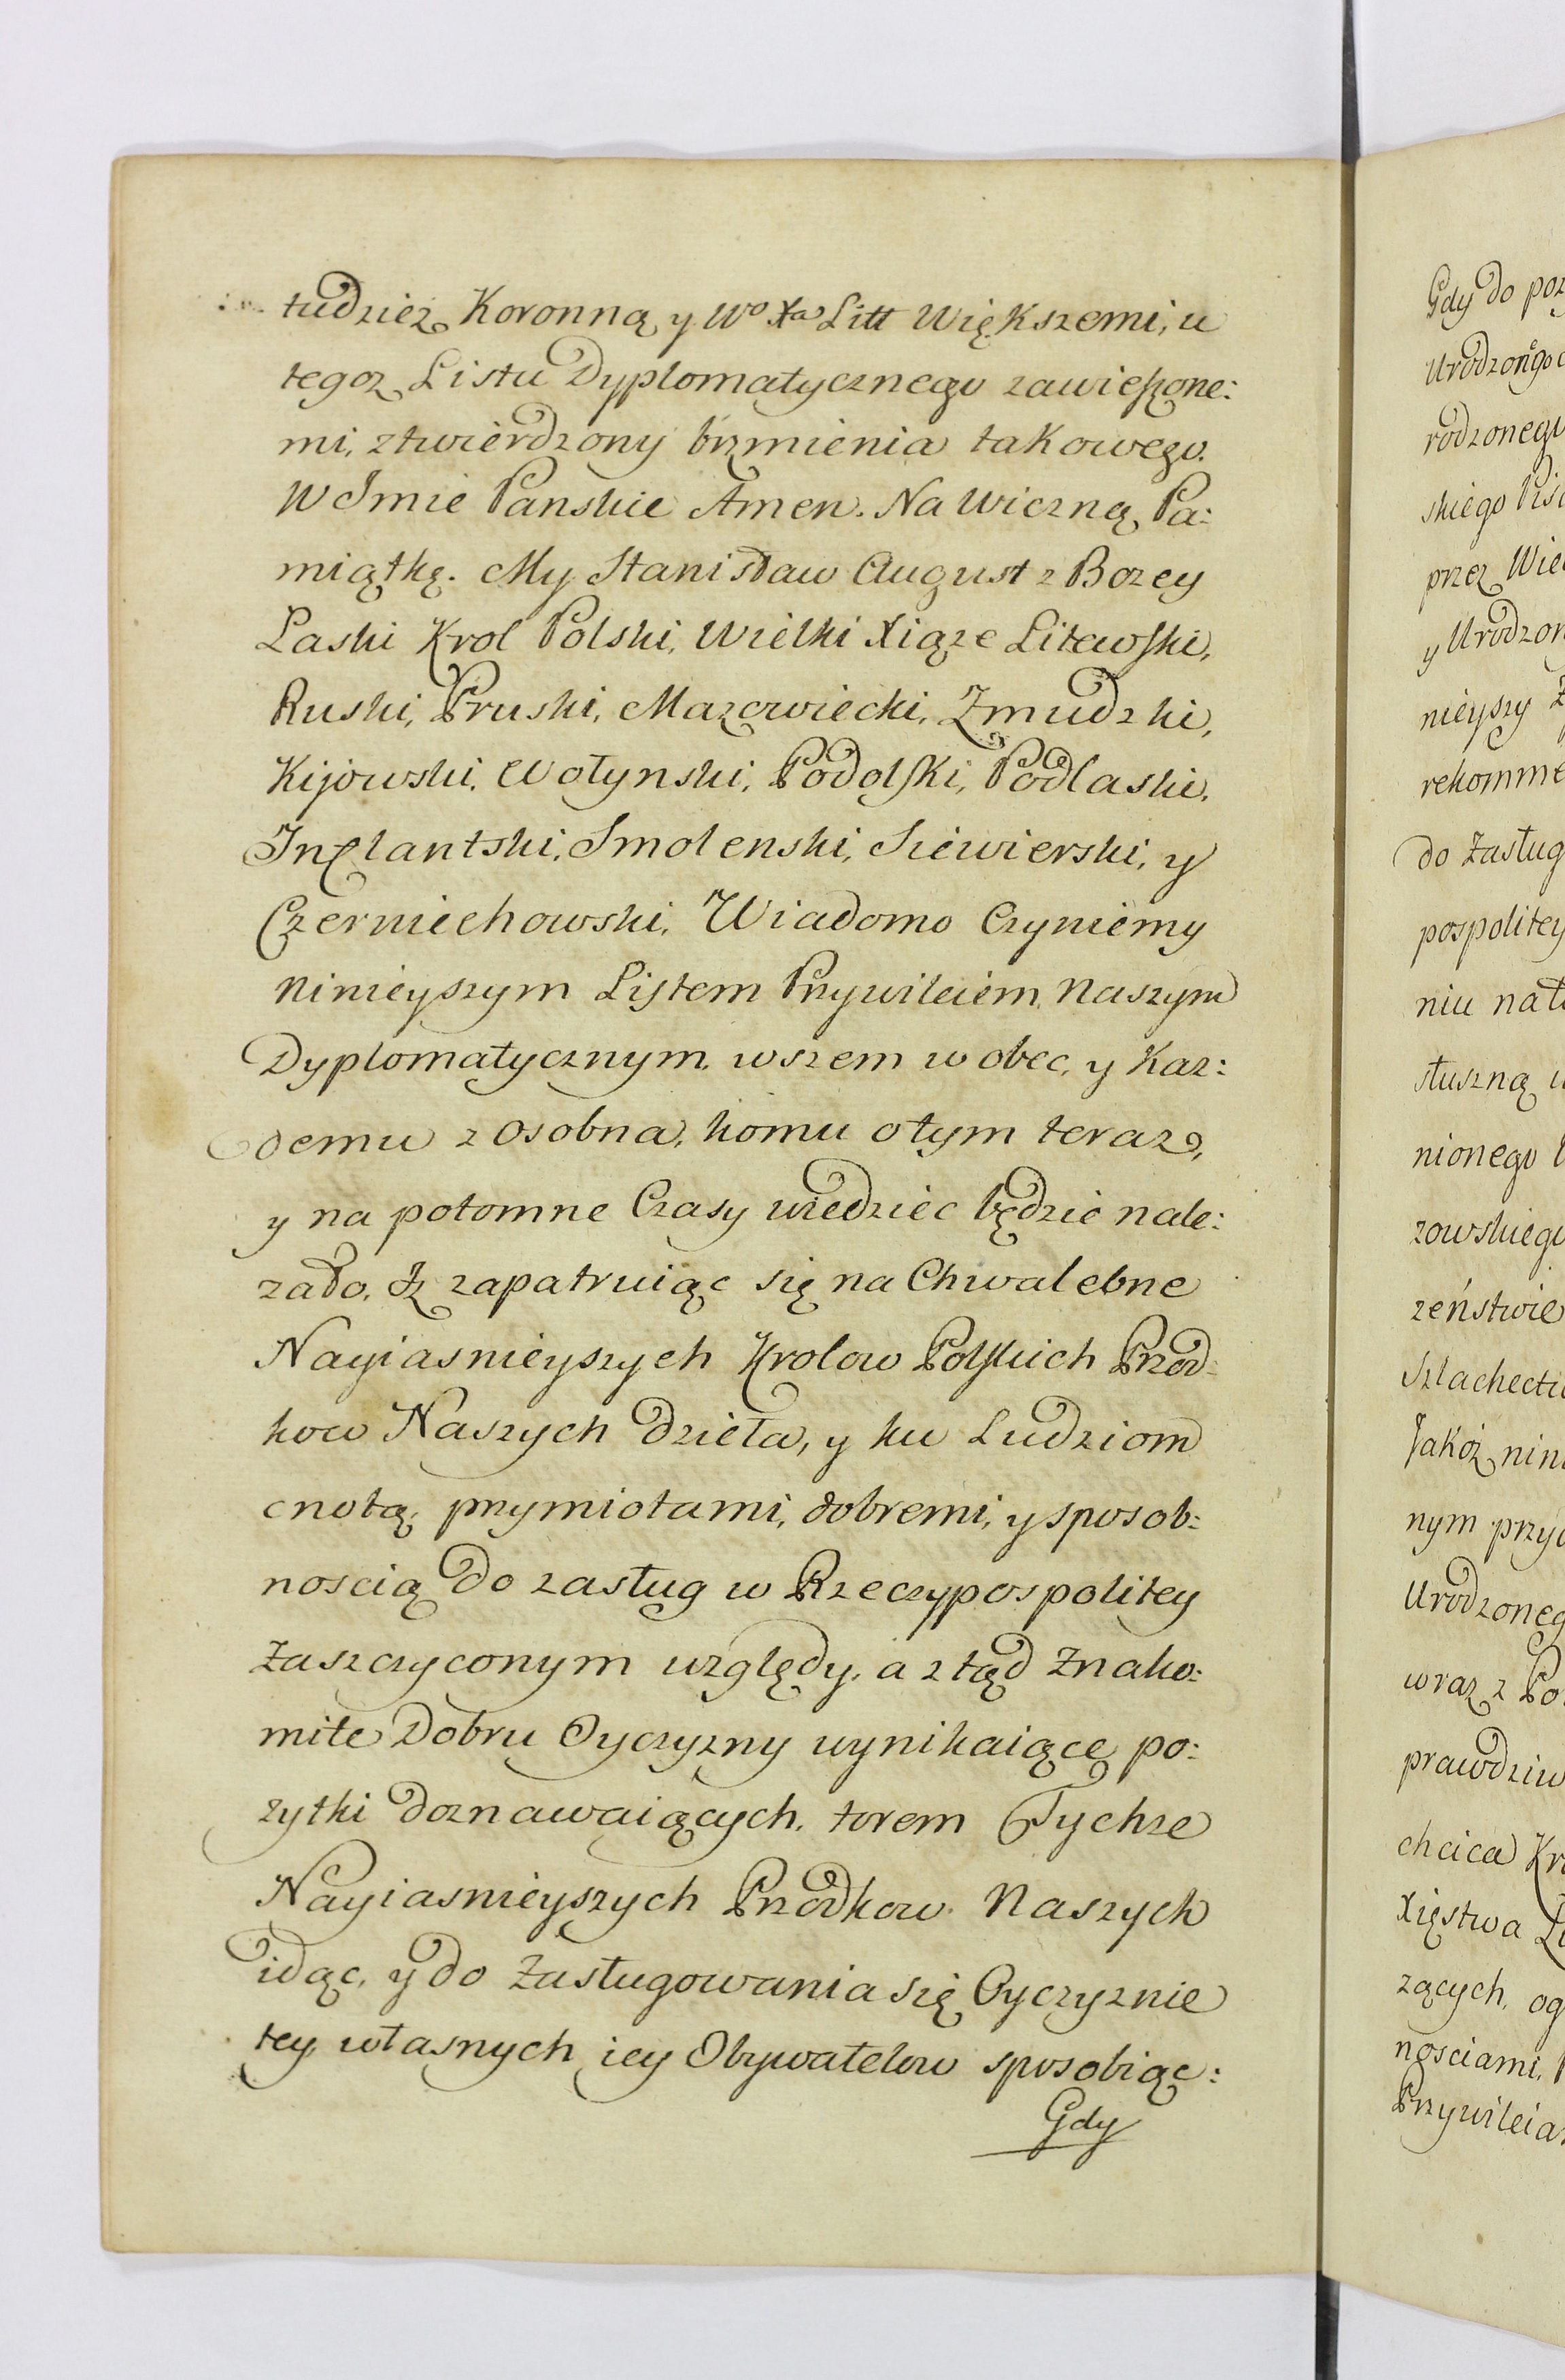 tudziez Koronną y Wo Xa Litt Większemi, u
tegoz Listu Dyplomatycznego zawieszone:
mi, ztwierdzony brzmienia takowego.
W Jmie Panskie Amen. Na Wieczną Pa:
miątkę. My Stanisław August z Bozey
Laski Krol Polski, Wielki Xiąze Litewski,
Ruski, Pruski, Mazowiecki, Zmudzki,
Kijowski, Wołynski, Podolski, Podlaski,
Inflantski, Smolenski, Siewierski, y
Czerniechowski, Wiadomo Czyniemy
Ninieyszym Listem Przywileiem Naszym
Dyplomatycznym, wszem w obec, y Kaz:
demu z osobna, komu o tym teraz,
y na potomne Czasy wiedziec będzie nale:
zało, Iz zapatruiąc się na Chwalebne
Nayiasnieyszych Krolow Polskich Przod:
kow Naszych dzieła, y ku Ludziom
cnotą, przymiotami, dobremi, y sposob:
noscią do zasług w Rzeczypospolitey
Zaszczyconym względy, a ztąd Znako:
mite Dobru Oyczyzny wynikaiące po:
zytki doznawaiących, torem Tychze
Nayiasnieyszych Przodkow Naszych
idąc, y do Zasługowania się Oyczyznie
tey własnych iey Obywatelow sposobiąc:
Gdy
Gdy do poz
Urodzon̊go
rodzonego
skiego Pis
przez Wie
y Urodzon
nieyszy Z
rekomme
do Zasług
pospolitey
niu nał
słuszną
nionego
zowskiego
zeństwie
Szlachect
Jakoż nin
nym przy
Urodzoneg
wraz z Po
prawdziw
chcica Kr
Xięstwa Li
zących, og
nosciami, P
Przywileia